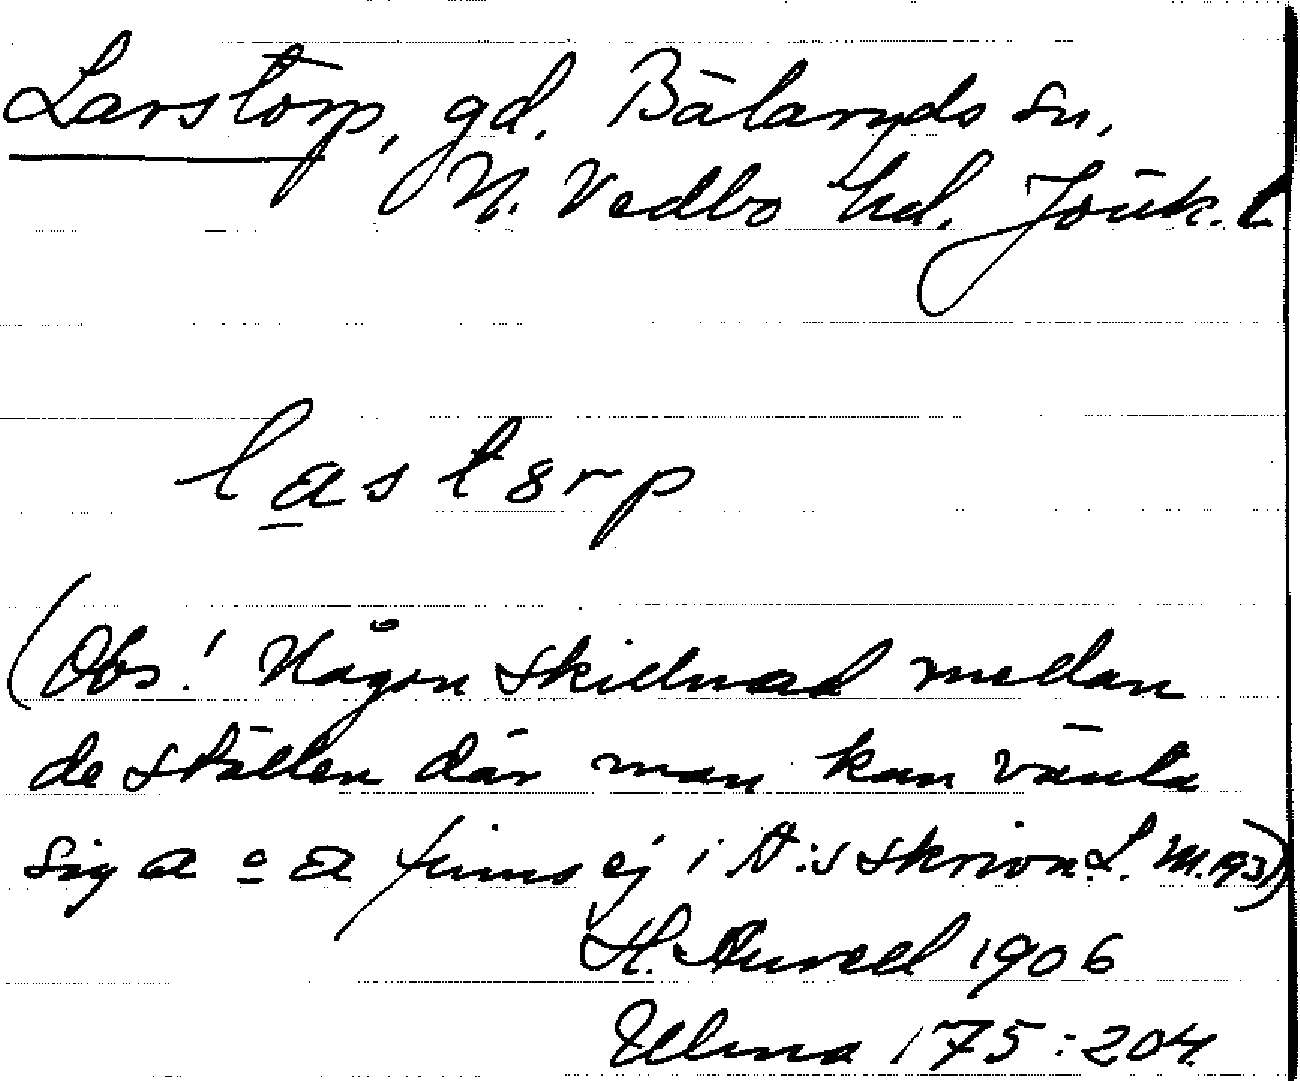 Larstorp, gd. Bälaryds sn,
N. Vedbo hd. Jönk. L
lastorp
(Obs! Någon skillnad mellan
de ställen där man kan vänta
sig a o a finns ej i A:s skrivn. L. M. 193)
H. Aurell 1906
Ulma 175:204